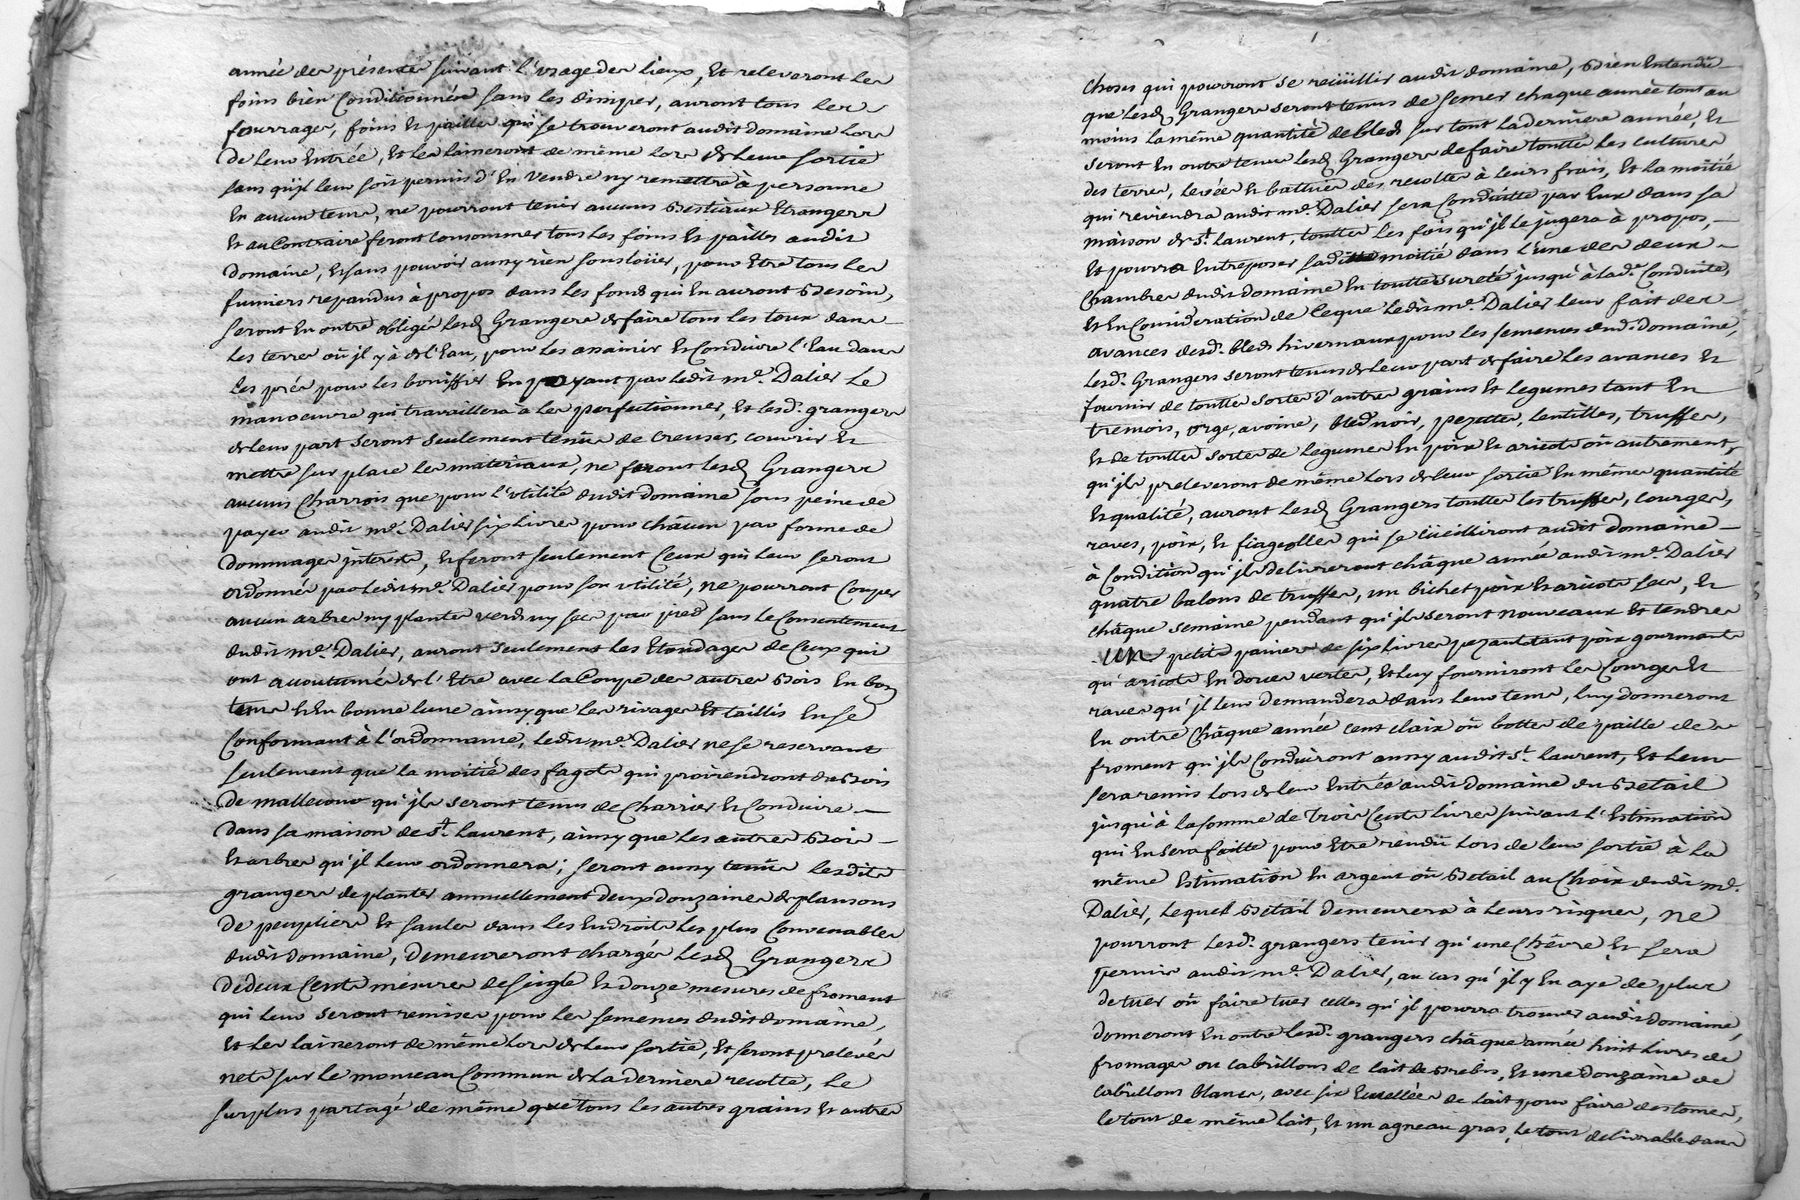 année des présentes suivant l'usage des lieux, Et releveront les
foins bien Conditionnés sans les dissiper, auront tous les
fourrages, foins Et pailles qui se trouveront audit domaine Lors
De leur Entrée, Et Les Laisseront de même Lors de leur sortie
sans qu'jl leur soit permis d'En Vendre ny remettre à personne
En aucun tems, ne pourront tenir aucuns Bestiaux Etrangers
Et au Contraire feront Consommer tous les foins Et pailles audit
Domaine, Et sans pouvoir aussy rien souslouer, pour Etre tous les
fumiers repandus à propos dans les fonds qui En auront Besoin,
seront En outre obligés lesd. Grangers de faire tous les toux dans
les terres où jl y à de l'Eau, pour les assainir Et Conduire l'Eau dans
les prés pour les bonniffier En payant par Ledit me. Dalier Le
manoeuvre qui travaillera à les perfectionner, Et lesd. grangers
de leur part seront seulement tenus de Creuser, couvrir Et
mettre sur place les materiaux, ne feront lesd. Grangers
aucuns Charrois que pour l'utilité dudit domaine sous peine de
payer audit me. Dalier six Livres pour châcun par forme de
Dommages jnterests, Et feront seulement Ceux qui leur seront
ordonnés par Ledit me. Dalier pour son utilité, ne pourront Couper
aucun arbres ny plantes verds ny secs par pied sans le Consentement
dudit me. Dalier, auront seulement les Etondages de Ceux qui
ont accoutumés de l'Etre avec la Coupe des autres Bois En bon
tems Et En bonne lune ainsy que les rivages Et taillis En se
Conformant à l'ordonnance, Ledit me. Dalier ne se reservant
seulement que la moitié des fagots qui proviendront du Bois
De mallecour qu'jls seront tenus de Charrier Et Conduire
Dans sa maison de St. Laurent, ainsy que les autres Bois
Et arbres qu'jl leur ordonnera; seront aussy tenus Lesdits
grangers de planter annuellement deux douzaines de plansons
De peupliers Et saules dans les Endroits les plus Convenables
dudit domaine, Demeureront chargés lesd. Grangers
De deux Cents mesures de seigle Et douze mesures de froment
qui leur seront remises pour les semences dudit domaine,
Et Les Laisseront de même Lors de leur sortie, Et seront prelevés
nets sur le monceau Commun de la derniere recolte, Le
surplus partagé de même que tous les autres grains Et autres
Choses qui pourront se recüillir audit domaine, Bien Entendû
que lesd. Grangers seront tenus de semer chaque année tout au
moins la même quantité de bleds sur tout la derniere année, Et
seront En outre tenus lesd. Grangers de faire toutte les cultures
des terres, levées Et battües des recoltes à leurs frais, Et la moitié
qui reviendra audit me. Dalier sera Conduitte par Eux dans sa
maison de St. Laurent, touttes les fois qu'jl le jugera à propos,
Et pourra Entreposer sa ditte moitié dans l'une des deux
Chambres dudit domaine En toutte sureté jusqu'à lade. Conduite,
Et En Consideration de Ceque Ledit me. Dalier leur fait des
avances desd. bleds hivernaux pour les semences dud. domaine,
Lesd. Grangers seront tenus de leur part de faire les avances Et
fournir de toutte sortes d'autres grains Et legumes tant En
tremois, orge, avoine, bled noir, pezettes, lentilles, truffes,
Et de touttes sortes de legumes En poix Et aricots où autrement,
qu'jls preleveront de même Lors de leur sortie En même quantité
Et qualité, auront Lesd. Grangers touttes les truffes, courges,
raves, poix, Et fiageolles qui se cüeilliront audit domaine
à Condition qu'jls delivreront châque année audit me. Dalier
quatre balons de truffes, un bichet poix Et aricots secs, Et
châque semaine pendant qu'jls seront nouveaux Et tendres
un petit paniers de six livres pezant tant poix gourmants
qu'aricots En dorces vertes, Et luy fourniront les Courges Et
raves qu'jl leur demandera dans leur tems, luy donneront
En outre Châque année Cent claix où bottes de paille de
froment qu'jls Conduiront aussy audit St. Laurent, Et leur
sera remis Lors de leur Entrée audit domaine du Betail
jusqu'à la somme de Trois Cents livres suivant l'Estimation
qui En sera faitte pour Etre rendû Lors de leur sortie à la
même Estimation En argent où Betail au Choix dudit me.
Dalier, Lequel Betail demeurera à leurs risques, ne
pourront Lesd. grangers tenir qu'une Chêvre Et sera
permis audit me. Dalier, au cas qu'jl y En aye de plus
de tuer où faire tuer celles qu'jl pourra trouver audit domaine,
donneront En outre Lesd. grangers châque année huit livres de
fromages ou Cabrillons de lait de Brebis, Et une douzaine de
Cabrillons blancs, avec six Ecuellées de lait pour faire des tomes,
Le tout de même lait, Et un agneau gras, Le tout delivrable dans